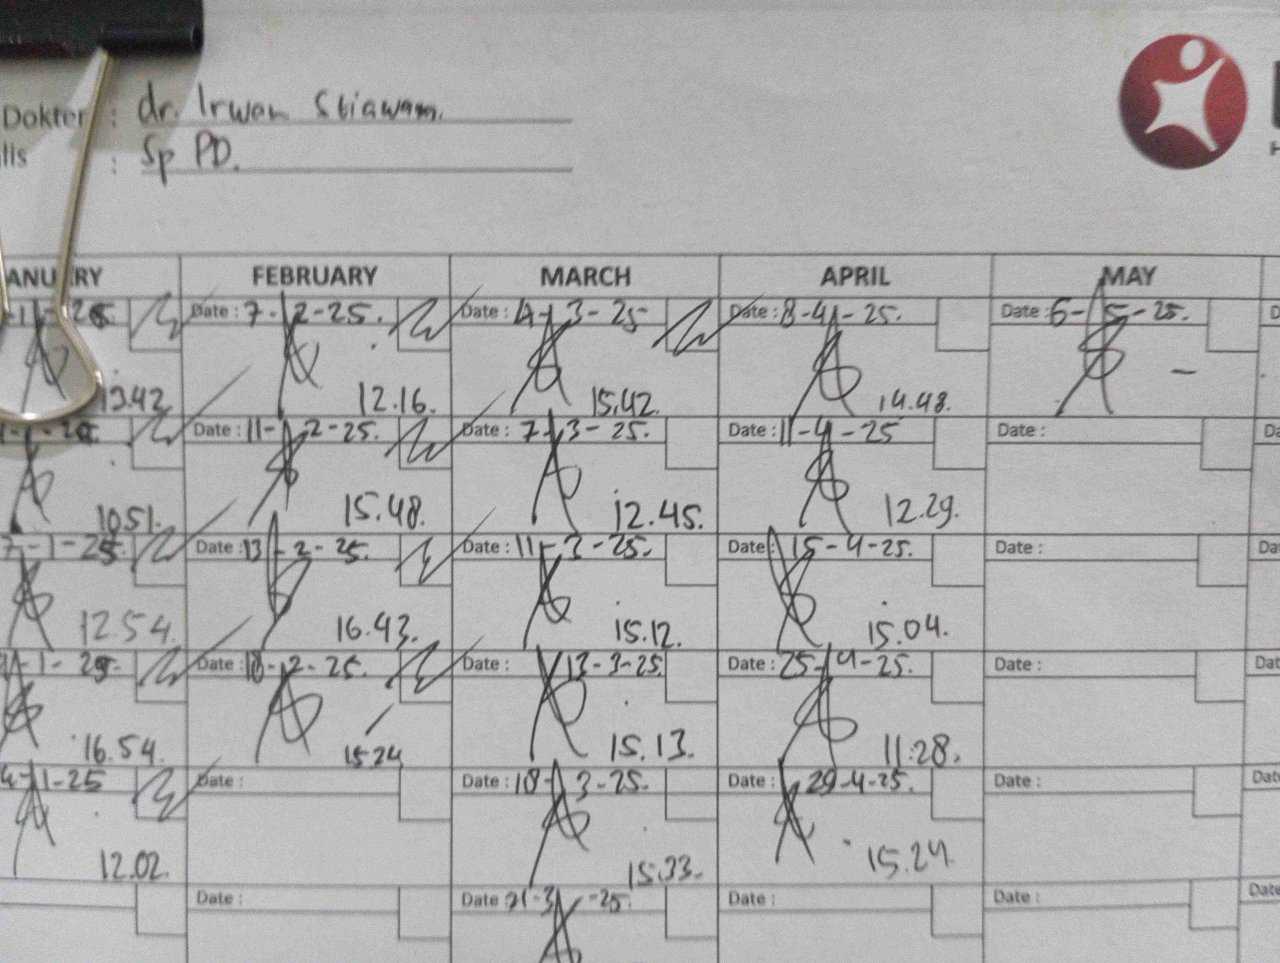 Dokter : dr. Irwan Stiawan.
lis : Sp PD.
H
ANUARY FEBRUARY MARCH APRIL MAY
Date : 7-2-25. Date : 4-3-25 Date : 8-4-25. Date : 6-5-25.
13.42 12.16. 15.42. 14.48. -
Date : 11-2-25. Date : 7-3-25. Date : 11-4-25 Date :
10.51. 15.48. 12.45. 12.29.
7-1-25. Date : 13-2-25. Date : 11-3-25. Date : 15-4-25. Date :
12.54. 16.43. 15.12. 15.04.
Date : 18-2-25. Date : 13-3-25 Date : 25-4-25. Date :
16.54. 15.24 15.13. 11.28.
Date : Date : 18-3-25. Date : 29-4-25. Date :
12.02. 15.33. 15.24.
Date : Date : 21-3-25. Date : Date :